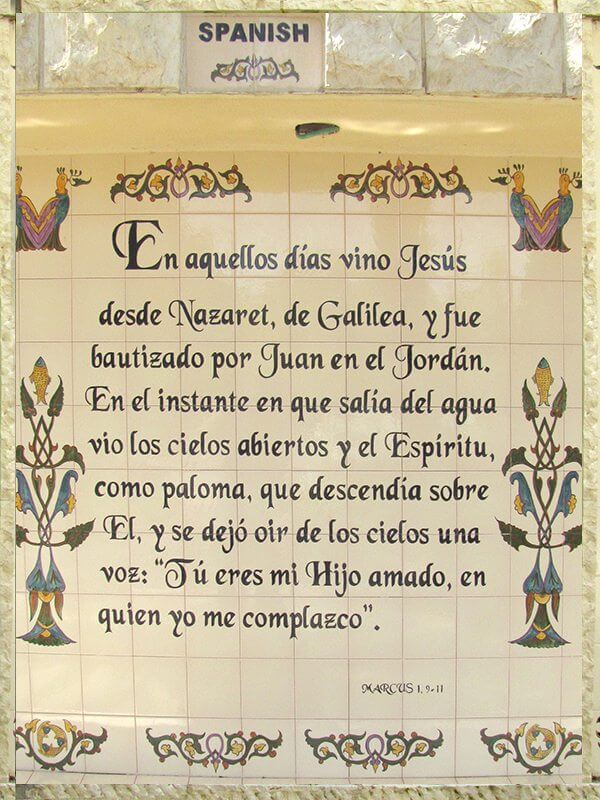 SPANISH
En aquellos días vino Jesús
desde Nazaret, de Galilea, y fue
bautizado por Juan en el Jordán.
En el instante en que salía del agua
vio los cielos abiertos y el Espíritu,
como paloma, que descendía sobre
El, y se dejó oir de los cielos una
voz: "Tú eres mi Hijo amado, en
quien yo me complazco".
MARCUS 1, 9-11